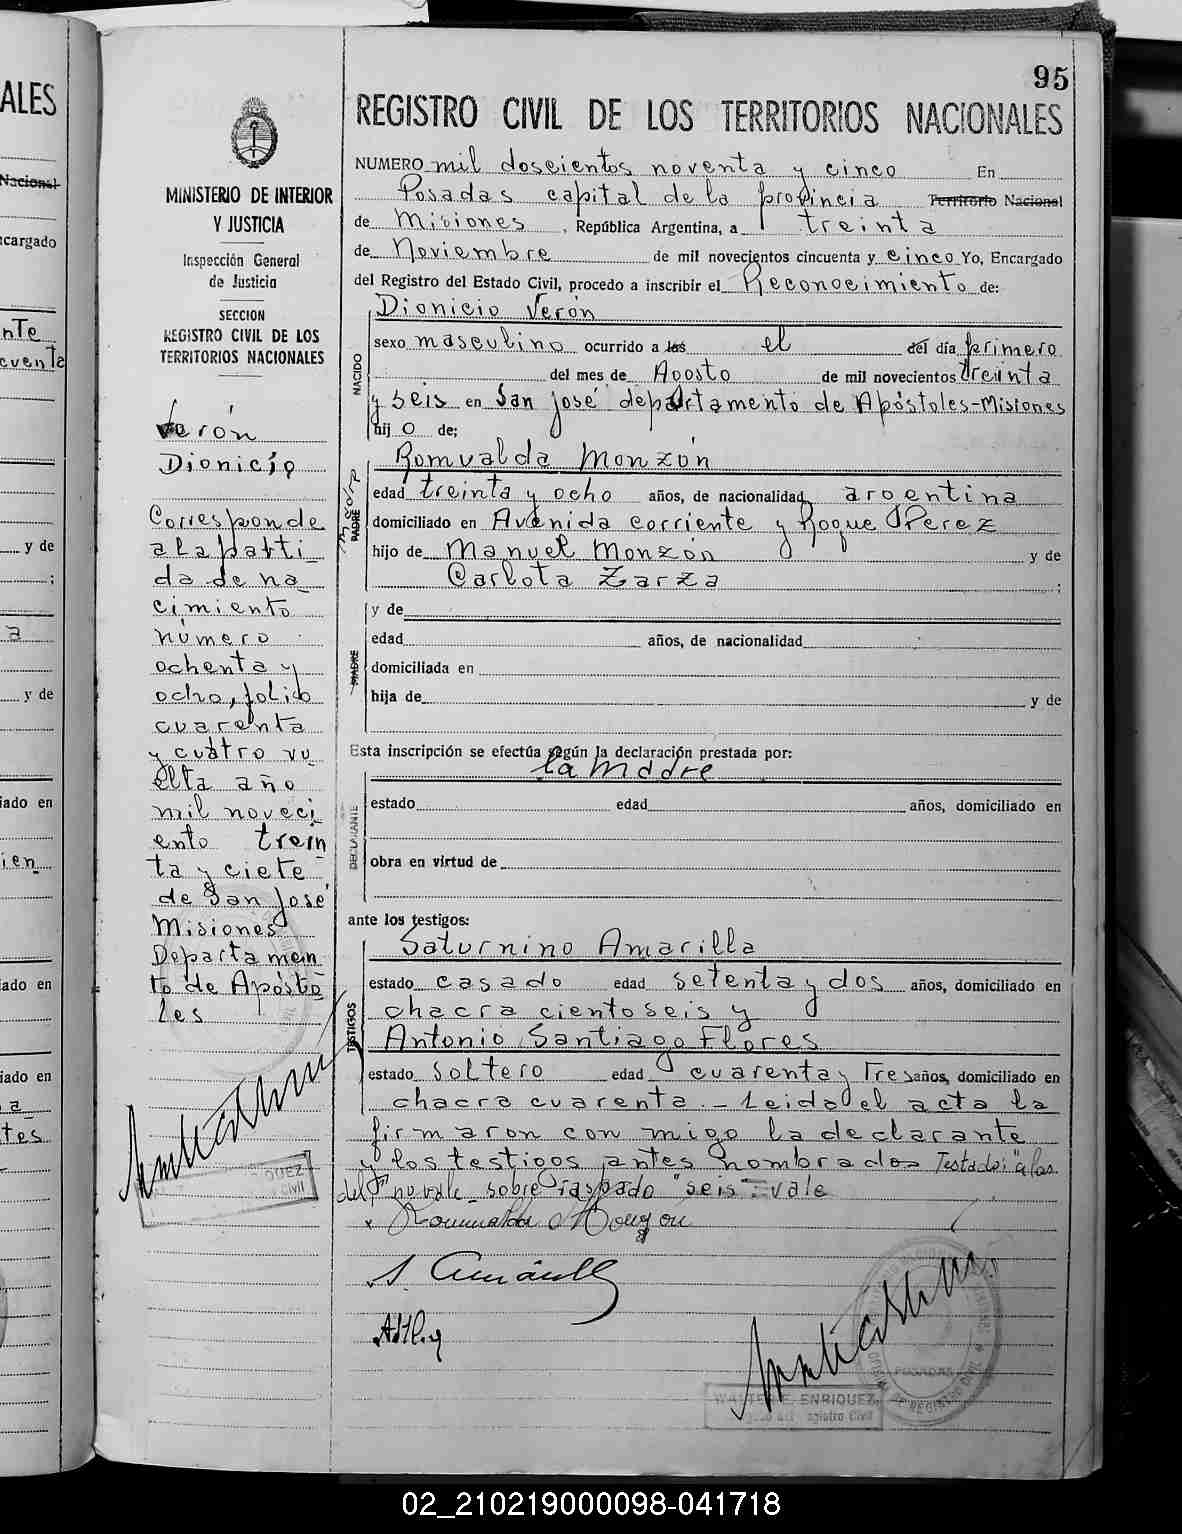 95
ALES
REGISTRO CIVIL DE LOS TERRITORIOS NACIONALES
MINISTERIO DE INTERIOR
Y JUSTICIA
Inspección General
de Justicia
SECCION
REGISTRO CIVIL DE LOS
TERRITORIOS NACIONALES
NUMERO mil doscientos noventa y cinco En
Posadas capital de la provincia Territorio Nacional
de Misiones, República Argentina, a treinta
de Noviembre de mil novecientos cincuenta y cinco Yo, Encargado
del Registro del Estado Civil, procedo a inscribir el Reconocimiento de:
Dionicio Verón
NACIDO
sexo masculino ocurrido a las el del día primero
del mes de Agosto de mil novecientos treinta
y seis en San José departamento de Apóstoles-Misiones
hij o de;
Romualda Monzón
PADRE
edad treinta y ocho años, de nacionalidad argentina
domiciliado en Avenida corriente y Roque Perez
hijo de Manuel Monzón y de
Carlota Zarza ;
y de
MADRE
edad años, de nacionalidad
domiciliada en
hija de y de
Esta inscripción se efectúa según la declaración prestada por:
la madre
DECLARANTE
estado edad años, domiciliado en
obra en virtud de
ante los testigos:
Saturnino Amarilla
TESTIGOS
estado casado edad setenta y dos años, domiciliado en
chacra ciento seis y
Antonio Santiago Flores
estado soltero edad cuarenta y Tres años, domiciliado en
chacra cuarenta.- Leida el acta la
firmaron con migo la declarante
y los testigos antes nombrados Testado: "a las
del" no vale sobre raspado "seis" = vale
Romualda Monzón
S. Amarilla
WALTER E. ENRIQUEZ
POSADAS
Verón
Dionicio
Corresponde
a la parti
da de na
cimiento
número
ochenta y
ocho, folio
cuarenta
y cuatro vu
elta año
mil noveci
ento trein
ta y ciete
de San José
Misiones
Departamen
to de Apósto
les
Nacional
cargado
nte
cuenta
y de
;
a
y de
iado en
ien
iado en
iado en
a
tes
02_210219000098-041718